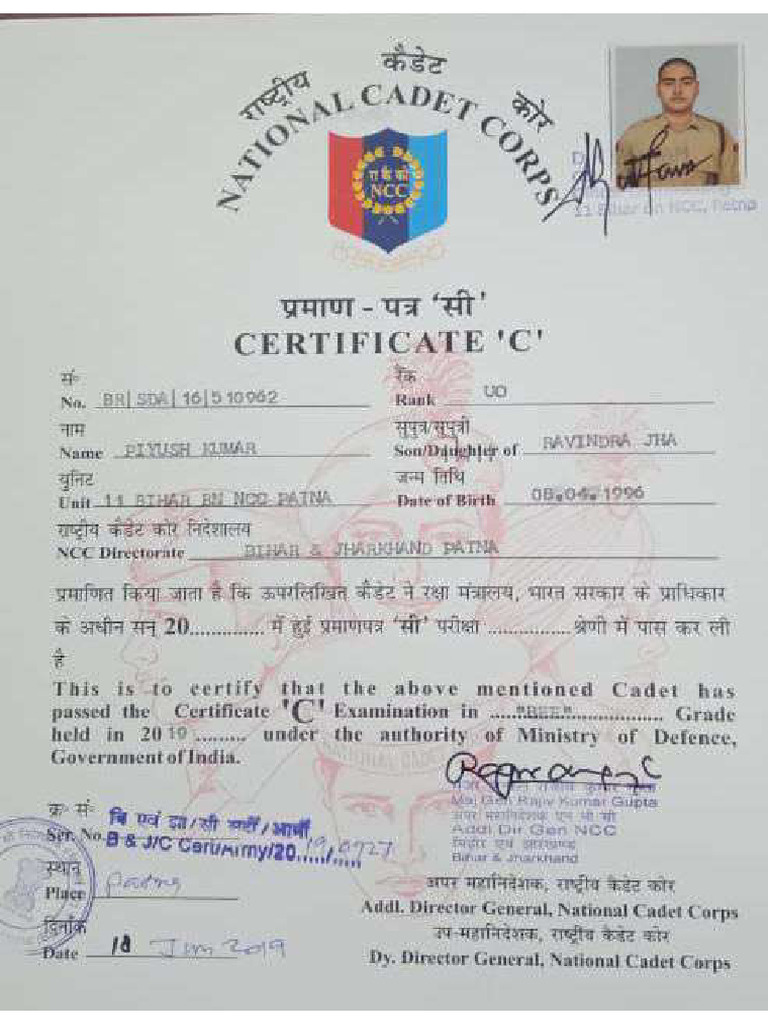 राष्ट्रीय कैडेट कोर
NATIONAL CADET CORPS
रा कै को
NCC
11 Bihar Bn NCC, Patna
प्रमाण - पत्र ‘सी’
CERTIFICATE 'C'
सं॰ रैंक
No. BR|SDA|16|510962 Rank UO
नाम सुपुत्र/सुपुत्री
Name PIYUSH KUMAR Son/Daughter of RAVINDRA JHA
युनिट जन्म तिथि
Unit 11 BIHAR BN NCC PATNA Date of Birth 08.04.1996
राष्ट्रीय कैडेट कोर निदेशालय
NCC Directorate BIHAR & JHARKHAND PATNA
प्रमाणित किया जाता है कि ऊपरलिखित कैडेट ने रक्षा मंत्रालय, भारत सरकार के प्राधिकार
के अधीन सन् 20.............. में हुई प्रमाणपत्र ‘सी’ परीक्षा ...............श्रेणी में पास कर ली
है
This is to certify that the above mentioned Cadet has
passed the Certificate 'C' Examination in ......"BEE"..................... Grade
held in 2019 ......... under the authority of Ministry of Defence,
Government of India.
Maj Gen Rajiv Kumar Gupta
अपर महानिदेशक एन सी सी
Addl Dir Gen NCC
बिहार एवं झारखण्ड
Bihar & Jharkhand
क्र॰ सं॰ बि एवं झा/सी सर्टी/आर्मी
Ser. No. B & J/C Cert/Army/2019/0927
स्थान अपर महानिदेशक, राष्ट्रीय कैडेट कोर
Place Patna Addl. Director General, National Cadet Corps
दिनाँक उप-महानिदेशक, राष्ट्रीय कैडेट कोर
Date 18 Jun 2019 Dy. Director General, National Cadet Corps